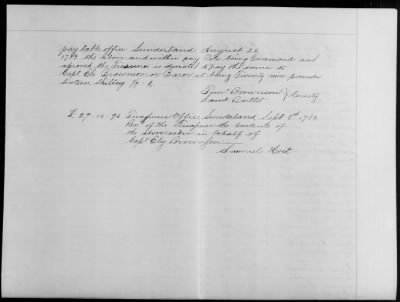 pay table office Sunderland August 26
1783 the above and within pay Role being Examined and
aproved the Tresurer is directed to pay the same to
Capt Eli Brownson or Barer it being Twenty nine pounds
Sixteen Shilling 9 : 6
Timo Brownson } Comty
Saml Butler
£ 29.16.9½ Treasurers Office Sunderland Sept 8th 1783
Recd of the Treasurer the contents of
the above order in behalf of
Capt Ely Brownson
Samuel Hoit